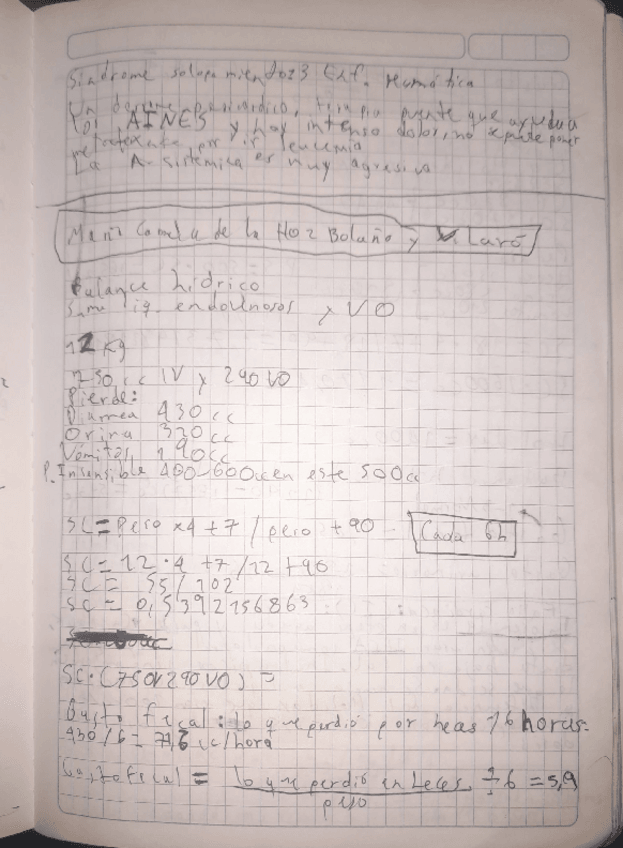 Sindrome solapamiento 23 Enf. reumática
Un dermeaperimidico, terapia puente que ayuda a
los AINES y hay intenso dolor, no se puede poner
metotexate por ir leucemia
La A. sistemica es muy agresiva
Maria Camila de la Hoz Bolaño y Laró
Balance hidrico
Suma liq. endovenosos y VO
12 kg
750 cc IV y 290 VO
Pierde:
Diarrea 430 cc
Orina 320 cc
Vomitos 190 cc
P. Insensible 400-600 cc en este 500cc
SC = Peso x4 +7 / peso +90
Cada 6h
SC = 12 · 4 +7 / 12 +90
SC = 55 / 102
SC = 0,5392156863
SC · (750IV 290 VO) =
Gasto fecal: lo que perdió por heces / 6 horas.
430 / 6 = 71,6 cc/hora
Gasto fecal = lo que perdió en heces ÷ 6 = 5,9
peso